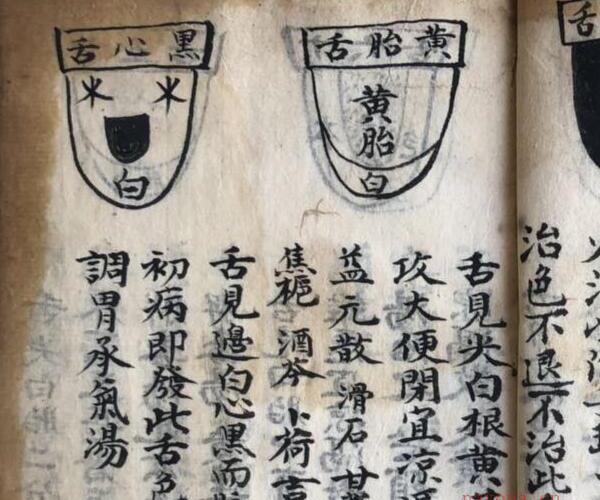 舌
治色不退不治此
黄胎舌
黄胎
白
舌見尖白根黄
攻大便閉宜凉
益元散 滑石 甘
焦栀 酒芩 卜荷
黑心舌
白
舌見邊白心黑而
初病即發此舌
調胃承氣湯